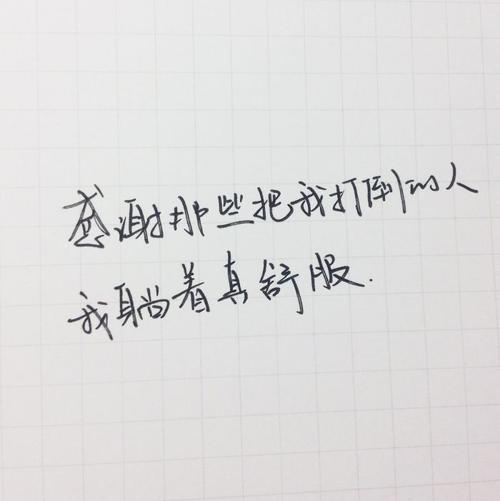 感谢那些把我打倒的人
我躺着真舒服.